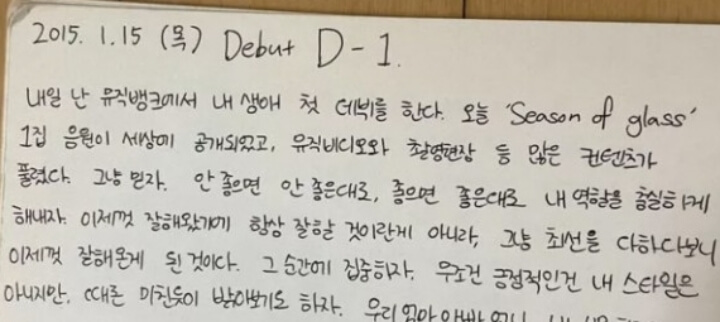 2015. 1.15 (목) Debut D-1.
내일 난 뮤직뱅크에서 내 생애 첫 데뷔를 한다. 오늘 'Season of glass'
1집 음원이 세상에 공개되었고, 뮤직비디오와 촬영현장 등 많은 컨텐츠가
풀렸다. 그냥 믿자. 안 좋으면 안 좋은대로, 좋으면 좋은대로 내 역할을 충실하게
해내자. 이제껏 잘해왔기에 항상 잘할 것이란게 아니라, 그냥 최선을 다하다보니
이제껏 잘해온게 된 것이다. 그 순간에 집중하자. 무조건 긍정적인건 내 스타일은
아니지만, 때론 미친듯이 받아보기도 하자. 우리 엄마 아빠